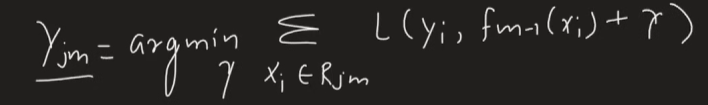 γjm = argmin γ Σ xi ∈ Rjm L(yi, fm-1(xi) + γ)